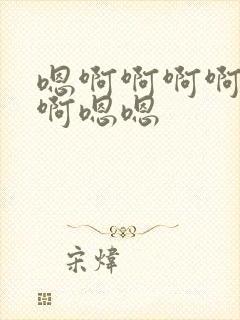 嗯啊啊啊啊
啊嗯嗯
宋炜